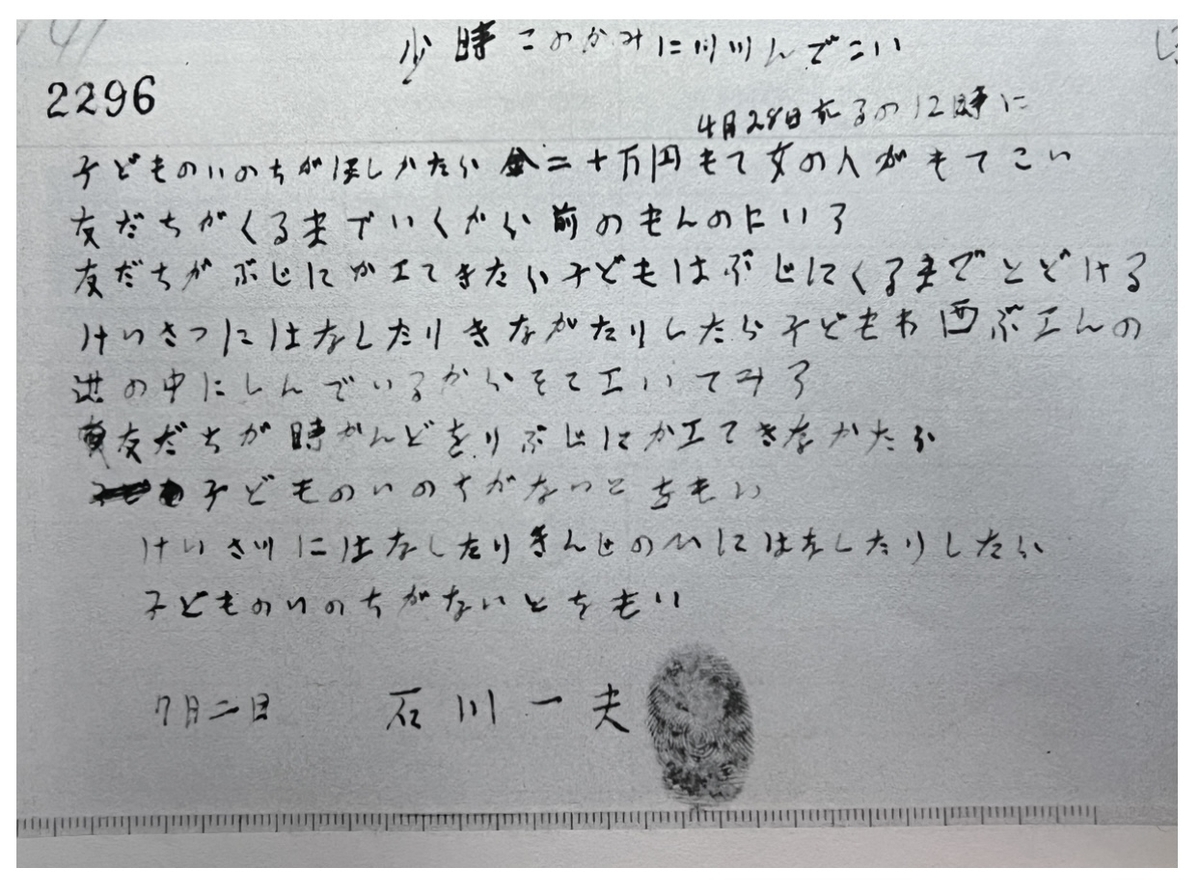 少時このかみに川川んでこい
2296
4月28日 るの12時に
子どものいのちがほしかたら金二十万円もて女の人がもてこい
友だちがくるまでいくから前のもんのにいろ
友だちがぶじにかエてきたら子どもはぶじにくるまでとどける
けいさつにはなしたりきながたりしたら子どもわ西ぶエんの
池の中にしんでいるからそてエいてみろ
友だちが時かんどをりぶじにかエてきなかたら
子どものいのちがないとをもい
けいさ川にはなしたりきんじの人にはなしたりしたら
子どものいのちがないとをもい
7月二日 石川一夫